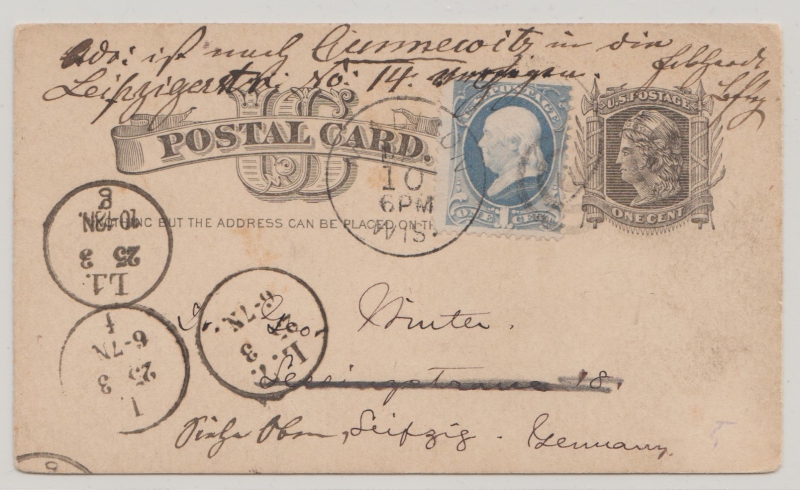 Adr: ist nach Connewitz in die
Leipzigerstr. No: 14. verzogen.
U.S. POSTAGE
POSTAL CARD.
NOTHING BUT THE ADDRESS CAN BE PLACED ON TH
10
6PM
U.S. POSTAGE
ONE CENT
ONE CENT
8
10-12N.
25 3
L.1.
6-7N
25 3
1.
6-7N.
3
L.
Dr. Geo. Winter.
Lessingstrasse 18.
Siehe Oben, Leipzig. Germany.